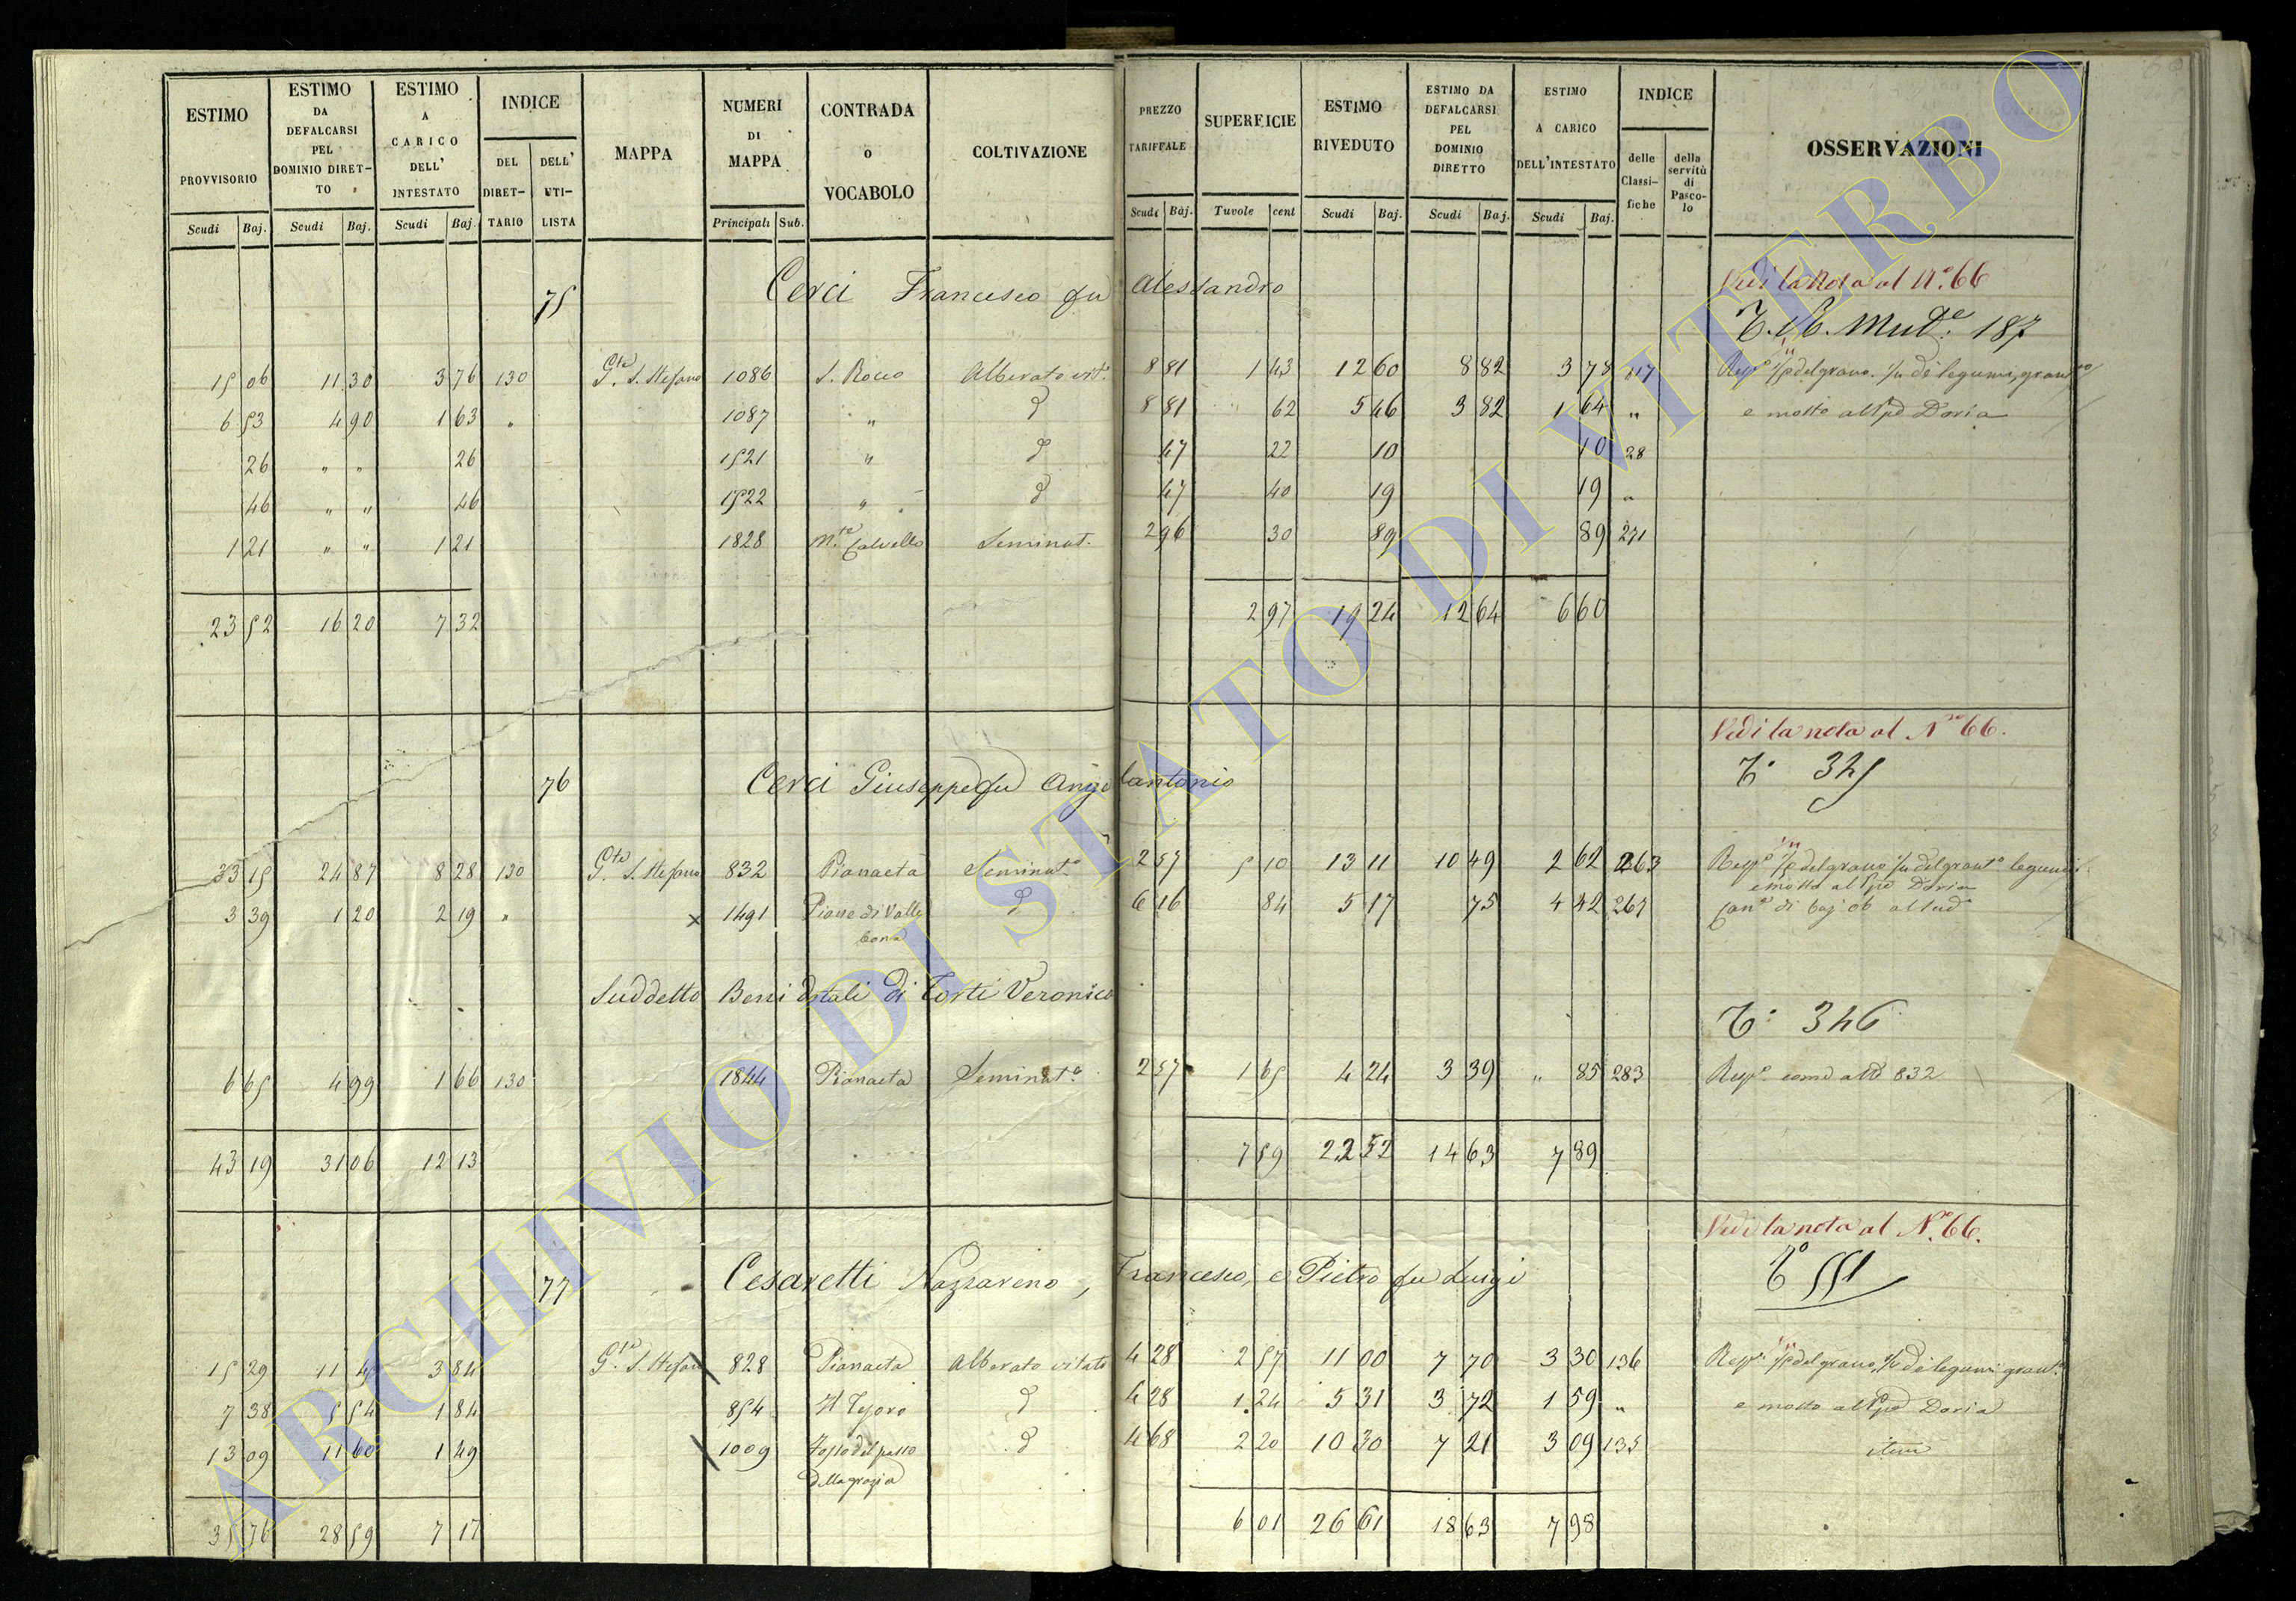 ESTIMO PROVVISORIO | ESTIMO DA DEFALCARSI PEL DOMINIO DIRETTO | ESTIMO A CARICO DELL' INTESTATO | INDICE | MAPPA | NUMERI DI MAPPA | CONTRADA o VOCABOLO | COLTIVAZIONE | PREZZO TARIFFALE | SUPERFICIE | ESTIMO RIVEDUTO | ESTIMO DA DEFALCARSI PEL DOMINIO DIRETTO | ESTIMO A CARICO DELL'INTESTATO | INDICE | OSSERVAZIONI
Scudi Baj. | Scudi Baj. | Scudi Baj. | DEL DIRETTARIO | DELL' UTILISTA | Principali Sub. | Scudi Baj. | Tavole cent | Scudi Baj. | Scudi Baj. | Scudi Baj. | delle Classifiche | della servitù di Pascolo
Vedi la Nota al N.º 66
75 Cerci Francesco fu Alessandro
187
15 06 | 11 30 | 3 76 | 130 | S. Stefano | 1086 | S. Rocco | Alberato vit.º | 8 81 | 1 43 | 12 60 | 8 82 | 3 78 | 117
6 53 | 4 90 | 1 63 | " | 1087 | " | 8 81 | 62 | 5 46 | 3 82 | 1 64 | " | e mosto al Doria
26 | " " | 26 | 1521 | " | 47 | 22 | 10 | 10 | 28
46 | " " | 46 | 1522 | " | 47 | 40 | 19 | 19 | "
1 21 | " " | 1 21 | 1828 | M.te Calvello | Seminat. | 2 96 | 30 | 89 | 89 | 271
23 52 | 16 20 | 7 32 | 2 97 | 19 24 | 12 64 | 6 60
Vedi la nota al N.º 66.
76 Cerci Giuseppe fu Angelantonio
345
33 15 | 24 87 | 8 28 | 130 | S. Stefano | 832 | Pianaeta | Seminat.º | 2 57 | 5 10 | 13 11 | 10 49 | 2 62 | 263
e mosto al Doria
3 39 | 1 20 | 2 19 | " | x 1491 | Piane di Valle bona | 6 16 | 84 | 5 17 | 75 | 4 42 | 267
Suddetto Beni dotali di Torti Veronica
346
6 65 | 4 99 | 1 66 | 130 | 1844 | Pianaeta | Seminat.º | 2 57 | 1 65 | 4 24 | 3 39 | " 85 | 283 | 832
43 19 | 31 06 | 12 13 | 7 59 | 22 52 | 14 63 | 7 89
Vedi la nota al N.º 66.
77 Cesaretti Nazzareno, Francesco, e Pietro fu Luigi
551
15 29 | 11 45 | 3 84 | 828 | Pianaeta | Alberato vitato | 4 28 | 2 57 | 11 00 | 7 70 | 3 30 | 136
7 38 | 5 54 | 1 84 | 854 | Il Tesoro | 4 28 | 1 24 | 5 31 | 3 72 | 1 59 | " | e mosto al Doria
13 09 | 11 60 | 1 49 | 1009 | Fosso del passo della grazia | 4 68 | 2 20 | 10 30 | 7 21 | 3 09 | 135
35 76 | 28 59 | 7 17 | 6 01 | 26 61 | 18 63 | 7 98
ARCHIVIO DI STATO DI VITERBO